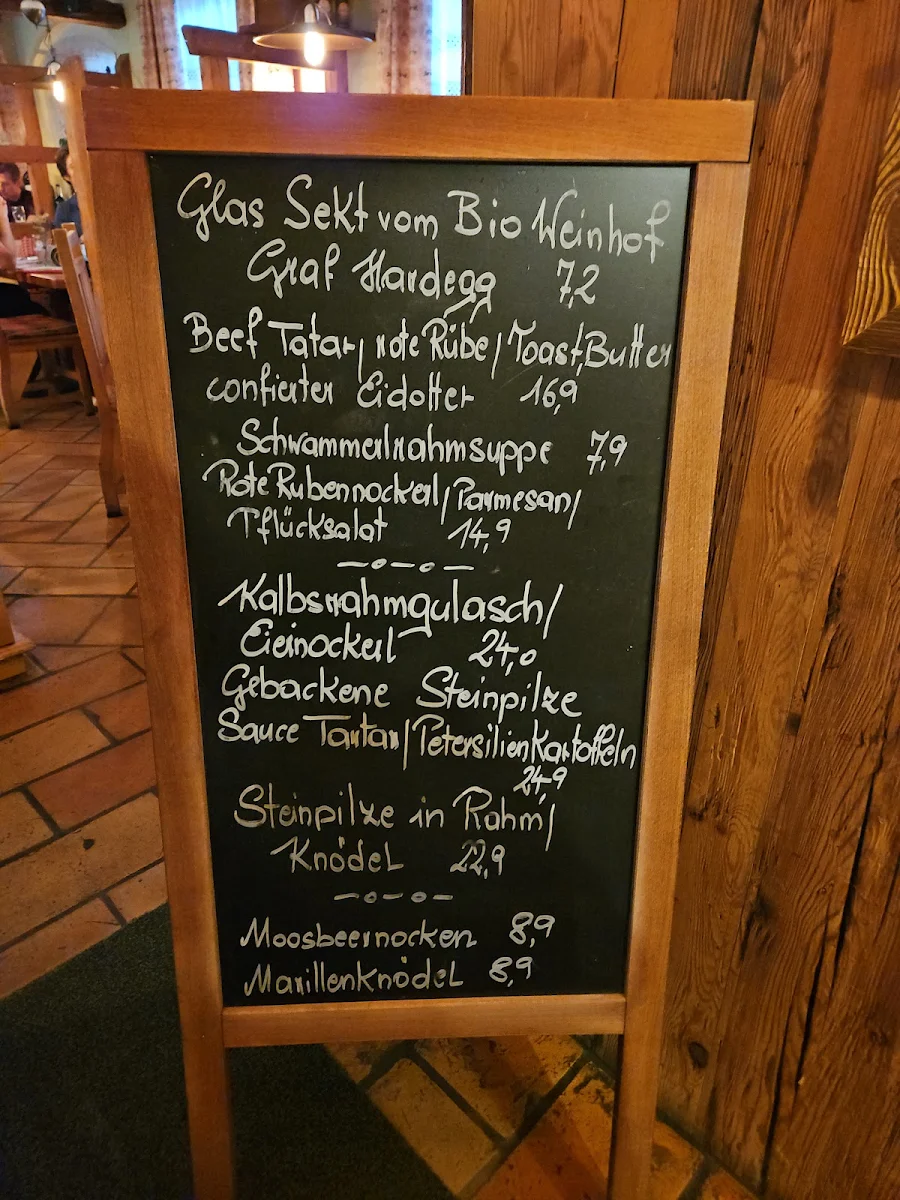 Glas Sekt vom Bio Weinhof
Graf Hardegg 7,2
Beef Tatar/rote Rübe/Toast,Butter
confierter Eidotter 16,9
Schwammerlrahmsuppe 7,9
Rote Rubennockerl/Parmesan/
Pflücksalat 14,9
Kalbsrahmgulasch/
Eiernockerl 24,0
Gebackene Steinpilze
Sauce Tartar/Petersilienkartoffeln
24,9
Steinpilze in Rahm/
Knödel 22,9
Moosbeernocken 8,9
Marillenknödel 8,9